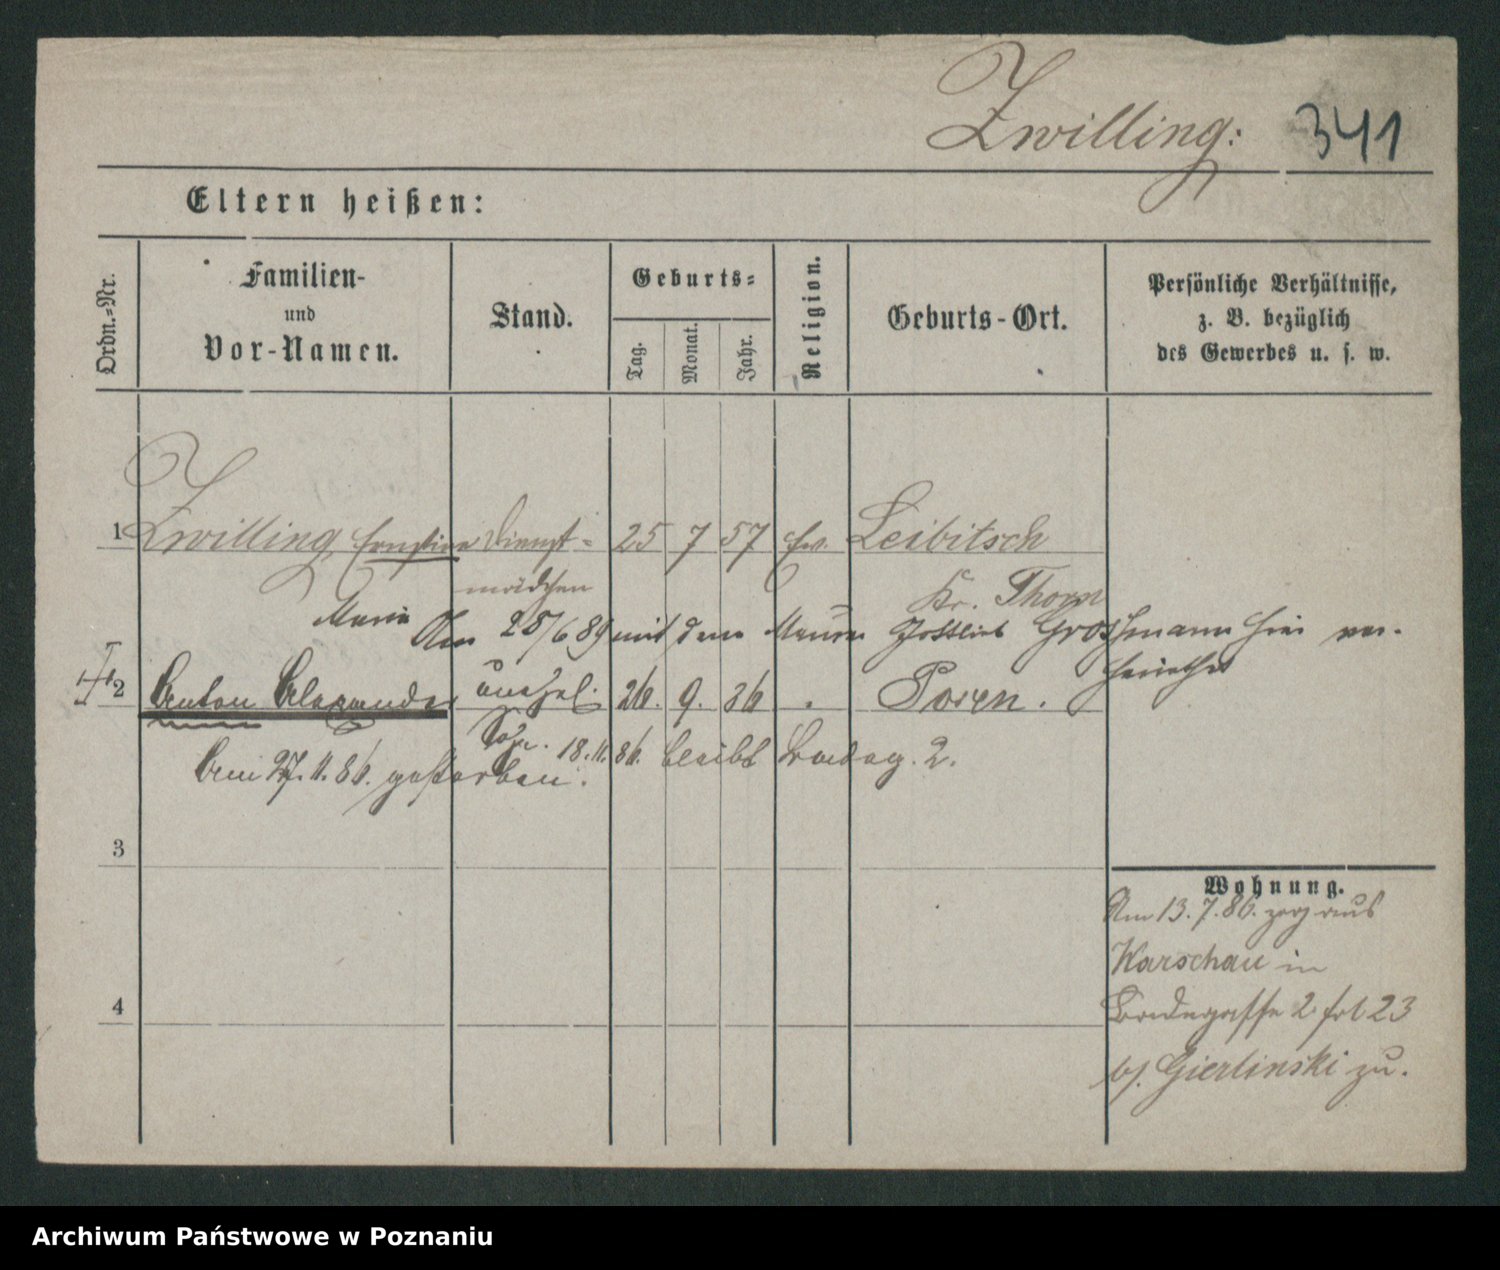 Zwilling: 341
Eltern heißen:
Ordn.-Nr.
Familien-
und
Vor-Namen.
Stand.
Geburts-
Tag.
Monat.
Jahr.
Religion.
Geburts-Ort.
Persönliche Verhältnisse,
z. B. bezüglich
des Gewerbes u. s. w.
1 Zwilling Ernstine Dienst- 25 7 57 ev. Leibitsch
mädchen Kr. Thorn
Marie Am 28/6 89 mit dem Maurer Gottlieb Großmann hier ver-
heirathet
2 Anton Alexander unehel. 26. 9. 86 Posen.
Sohn. 18.11.86. bleibt 2.
Am 27.11.86. gestorben.
3
4
Wohnung.
Am 13.7.86. zog aus
Warschau in
2 23
b/. Gierlinski zu.
Archiwum Państwowe w Poznaniu